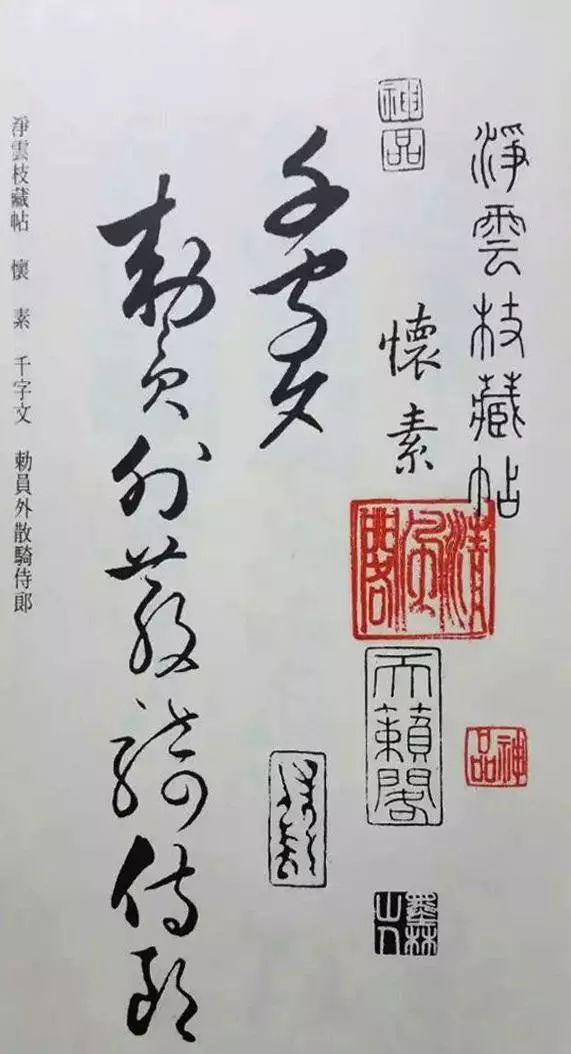 淨雲枝藏帖
神品
神品
懷素
天籟閣
墨林山人
千字文
勅員外散騎侍郎
淨雲枝藏帖 懷 素 千字文 勅員外散騎侍郎